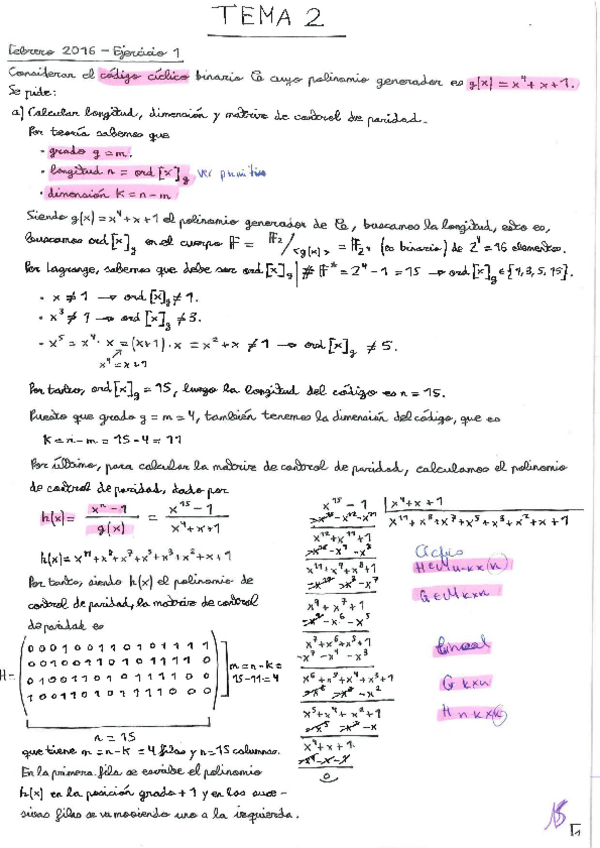 TEMA 2
Febrero 2016 - Ejercicio 1
Considerar el código cíclico binario C cuyo polinomio generador es g(x) = x⁴ + x + 1.
Se pide:
a) Calcular longitud, dimensión y matriz de control de paridad.
Por teoría sabemos que
· grado g = m.
· longitud n = ord [x]g ver primitivo
· dimensión k = n - m
Siendo g(x) = x⁴ + x + 1 el polinomio generador de C, buscamos la longitud, esto es,
buscamos ord [x]g en el cuerpo F = F₂/<g(x)> = F₂⁴ (es binario) de 2⁴ = 16 elementos.
Por Lagrange, sabemos que debe ser ord [x]g | # F* = 2⁴ - 1 = 15 → ord [x]g ∈ {1, 3, 5, 15}.
· x ≠ 1 → ord [x]g ≠ 1.
· x³ ≠ 1 → ord [x]g ≠ 3.
· x⁵ = x⁴ · x = (x+1) · x = x² + x ≠ 1 → ord [x]g ≠ 5.
x⁴ = x + 1
Por tanto, ord [x]g = 15, luego la longitud del código es n = 15.
Puesto que grado g = m = 4, también tenemos la dimensión del código, que es
k = n - m = 15 - 4 = 11
Por último, para calcular la matriz de control de paridad, calculamos el polinomio
de control de paridad, dado por
h(x) = xⁿ - 1 / g(x) = x¹⁵ - 1 / x⁴ + x + 1
h(x) = x¹¹ + x⁸ + x⁷ + x⁵ + x³ + x² + x + 1
Por tanto, siendo h(x) el polinomio de
control de paridad, la matriz de control
de paridad es
H =
0 0 0 1 0 0 1 1 0 1 0 1 1 1 1
0 0 1 0 0 1 1 0 1 0 1 1 1 1 0
0 1 0 0 1 1 0 1 0 1 1 1 1 0 0
1 0 0 1 1 0 1 0 1 1 1 1 0 0 0
m = n - k =
15 - 11 = 4
n = 15
que tiene m = n - k = 4 filas y n = 15 columnas.
En la primera fila se escribe el polinomio
h(x) en la posición grado + 1 y en las suce-
sivas filas se va moviendo uno a la izquierda.
x¹⁵ - 1 | x⁴ + x + 1
x¹¹ + x⁸ + x⁷ + x⁵ + x³ + x² + x + 1
-x¹⁵ - x¹² - x¹¹
x¹² + x¹¹ + 1
-x¹² - x⁹ - x⁸
x¹¹ + x⁹ + x⁸ + 1
-x¹¹ - x⁸ - x⁷
x⁹ + x⁷ + 1
-x⁹ - x⁶ - x⁵
x⁷ + x⁶ + x⁵ + 1
-x⁷ - x⁴ - x³
x⁶ + x⁵ + x⁴ + x³ + 1
-x⁶ - x³ - x²
x⁵ + x⁴ + x² + 1
-x⁵ - x² - x
x⁴ + x + 1
-x⁴ - x - 1
0
Cíclico
G ∈ M k×n
Lineal
G k×n